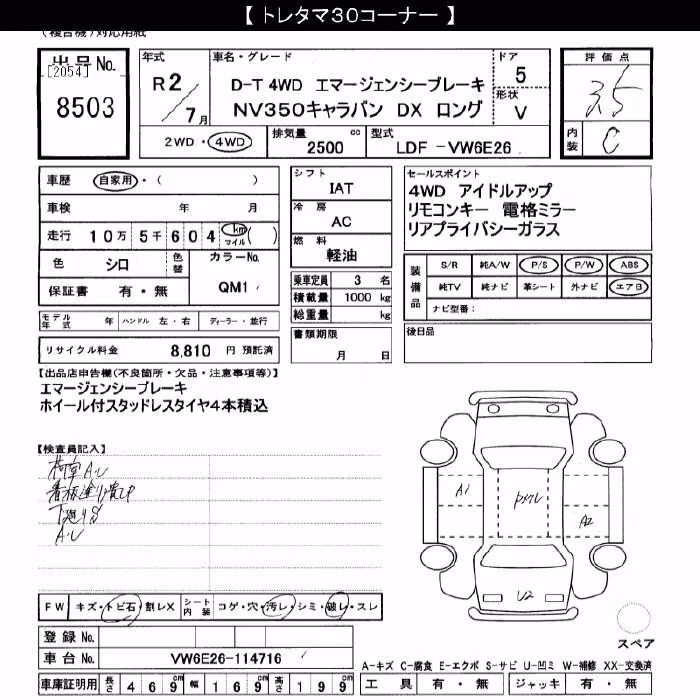 【 トレタマ30コーナー 】
(複合機)対応用紙
出品No. 年式 車名・グレード ドア 評価点
[2054] R2 D-T 4WD エマージェンシーブレーキ 5 3.5
8503 7月 NV350キャラバン DX ロング 形状 V
2WD・4WD 排気量 2500 cc 型式 LDF -VW6E26 内装 C
車歴 自家用・( )
車検 年 月
走行 10万 5千 604 km マイル ( )
色 シロ 色替 カラーNo.
保証書 有・無 QM1
モデル年式 年 ハンドル 左・右 ディーラー・並行
リサイクル料金 8,810 円 預託済
シフト
IAT
冷房
AC
燃料
軽油
乗車定員 3 名
積載量 1000 kg
総重量 kg
書類期限
月 日
セールスポイント
4WD アイドルアップ
リモコンキー 電格ミラー
リアプライバシーガラス
装備品 S/R 純A/W P/S P/W ABS
純TV 純ナビ 革シート 外ナビ エアB
ナビ型番:
後日品
【出品店申告欄(不良箇所・欠品・注意事項等)】
エマージェンシーブレーキ
ホイール付スタッドレスタイヤ4本積込
【検査員記入】
荷室A.U
看板塗り潰し
下廻りS
A.U
A1
A2
U2
FW キズ・トビ石・割レX シート内装 コゲ・穴・汚レ・シミ・破レ・スレ
登録 No.
車台 No. VW6E26-114716
スペア
A-キズ C-腐食 E-エクボ S-サビ U-凹ミ W-補修 XX-交換済
車庫証明用 長さ 469 cm 幅 169 cm 高さ 199 cm 工具 有・無 ジャッキ 有・無